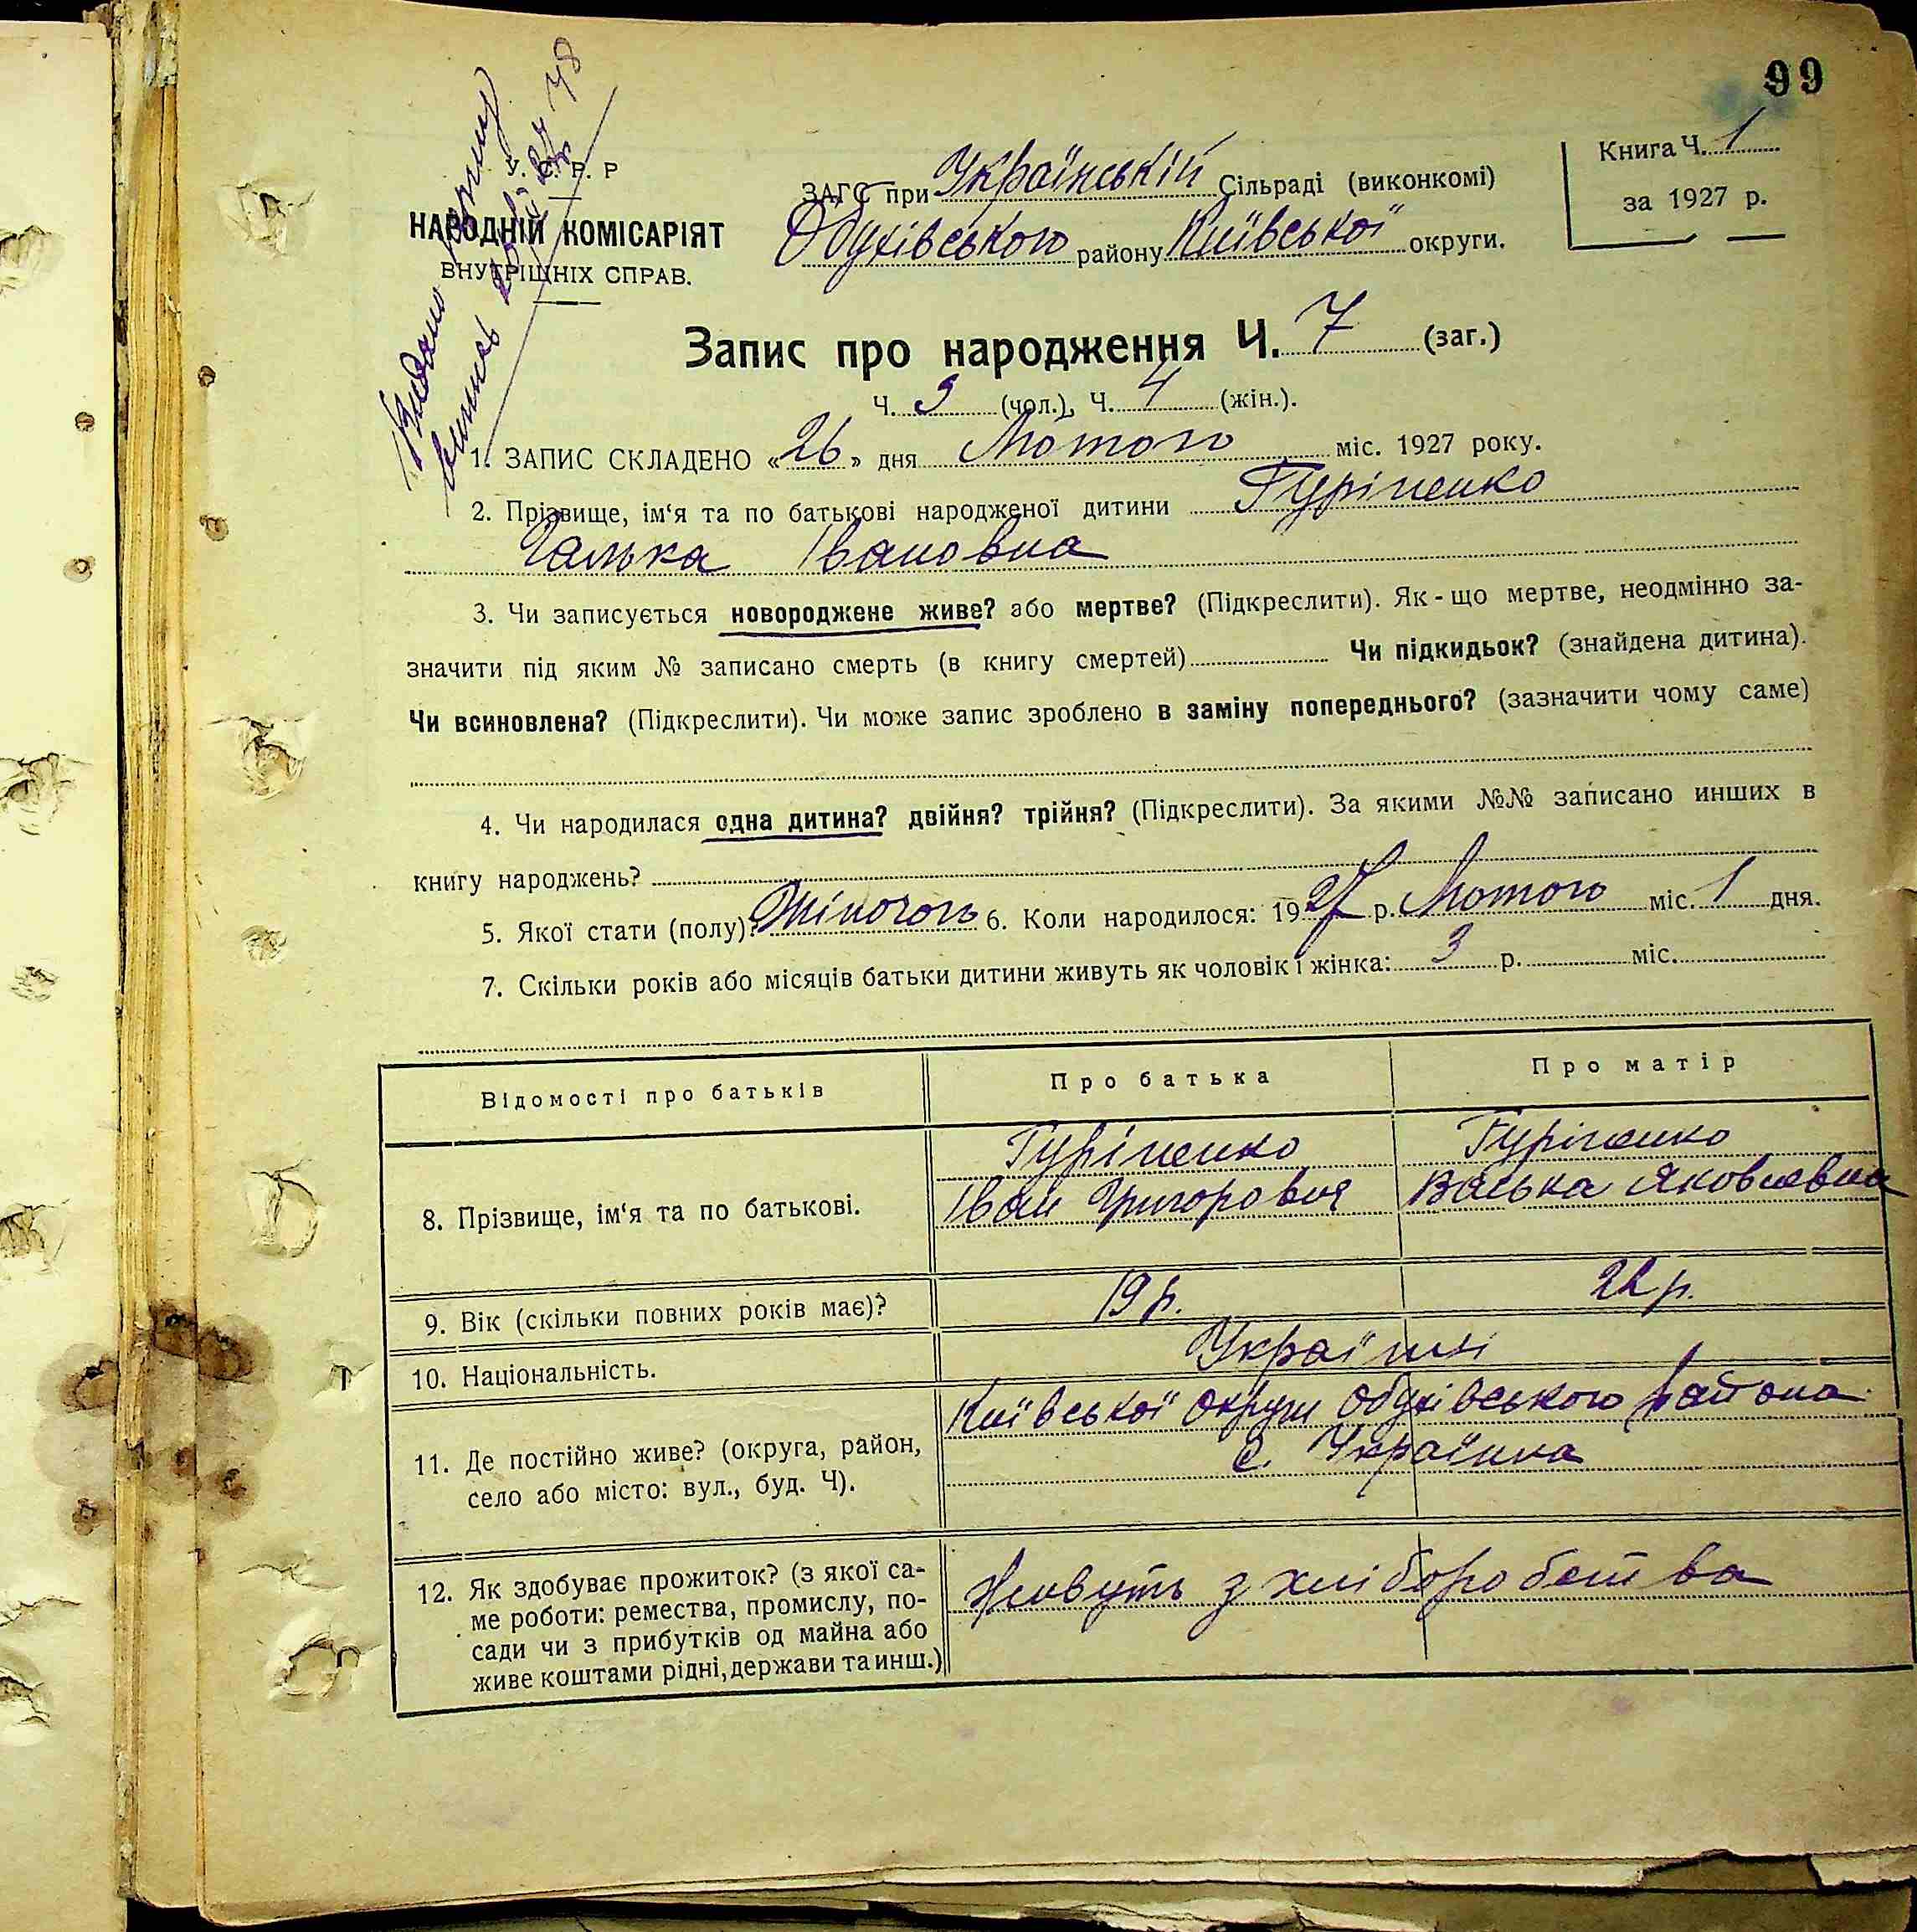 99
Книга Ч. 1
за 1927 р.
У. С. Р. Р
НАРОДНІЙ КОМІСАРІЯТ
ВНУТРІШНІХ СПРАВ.
ЗАГС при Українській Сільраді (виконкомі)
Обухівського району Київської округи.
Запис про народження Ч. 7 (заг.)
Ч. 3 (чол.), Ч. 4 (жін.).
1. ЗАПИС СКЛАДЕНО «26» дня Лютого міс. 1927 року.
2. Прізвище, ім‘я та по батькові народженої дитини Гуріненко
Галька Івановна
3. Чи записується новороджене живе? або мертве? (Підкреслити). Як-що мертве, неодмінно за-
значити під яким № записано смерть (в книгу смертей) Чи підкидьок? (знайдена дитина).
Чи всиновлена? (Підкреслити). Чи може запис зроблено в заміну попереднього? (зазначити чому саме)
4. Чи народилася одна дитина? двійня? трійня? (Підкреслити). За якими №№ записано инших в
книгу народжень?
5. Якої стати (полу)? Жіночого 6. Коли народилося: 1927 р. Лютого міс. 1 дня.
7. Скільки років або місяців батьки дитини живуть як чоловік і жінка: 3 р. міс.
Відомості про батьків Про батька Про матір
8. Прізвище, ім‘я та по батькові.
Гуріненко Гуріненко
Іван Григорович Васька Яковлевна
9. Вік (скільки повних років має)? 19 р. 22 р.
10. Національність. Українці
11. Де постійно живе? (округа, район,
село або місто: вул., буд. Ч).
Київської округи Обухівського района
с. Українка
12. Як здобуває прожиток? (з якої са-
ме роботи: ремества, промислу, по-
сади чи з прибутків од майна або
живе коштами рідні, держави та инш.)
Живуть з хліборобства